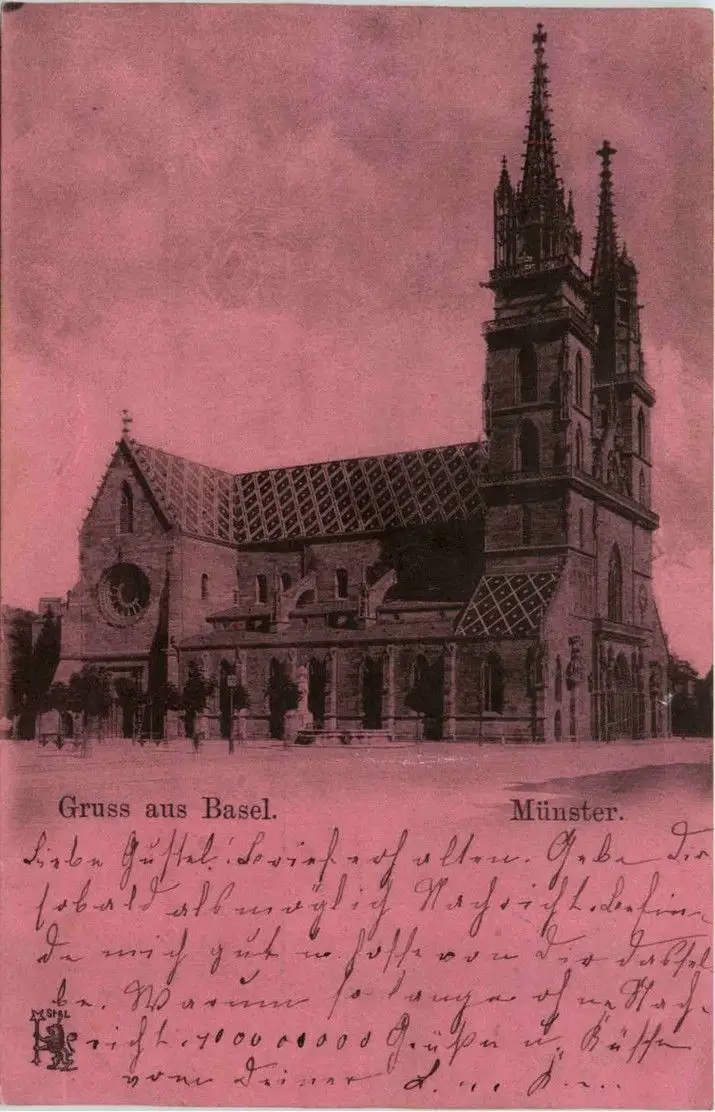 Gruss aus Basel. Münster.
Liebe Gustel! Brief erhalten. Gebe Dir
sobald als möglich Nachricht. Befin-
de mich gut u. hoffe von Dir dassel
be. Warum so lange ohne Nach-
richt. 10000000000 Grüße u. Küsse
von Deiner L.... K....
M. St. & L.